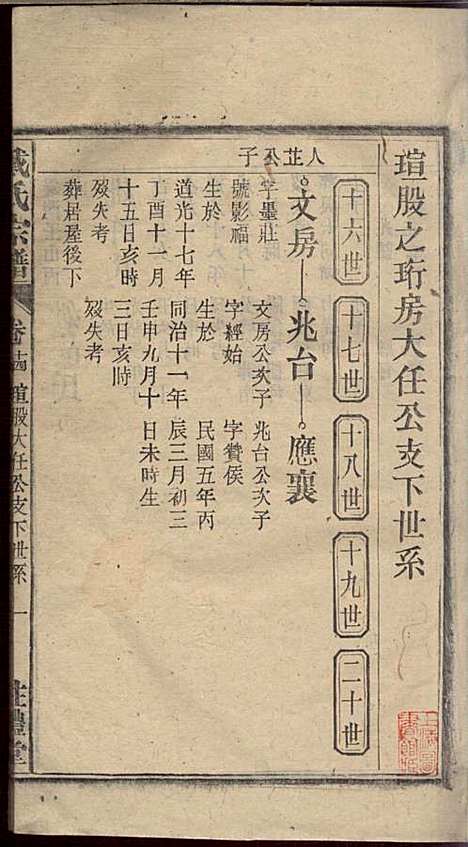 瑄股之珩房大任公支下世系
十六世
十七世
十八世
十九世
二十世
人芷公子
文房
兆台
應襄
字墨莊
號影福
生於
道光十七年
丁酉十一月
十五日亥時
歿失考
葬居屋後下
文房公次子
字經始
生於
同治十一年
壬申九月十
三日亥時
歿失考
兆台公次子
字贊侯
民國五年丙
辰三月初三
日未時生
氏宗譜
卷
瑄股大任公支下世系
一